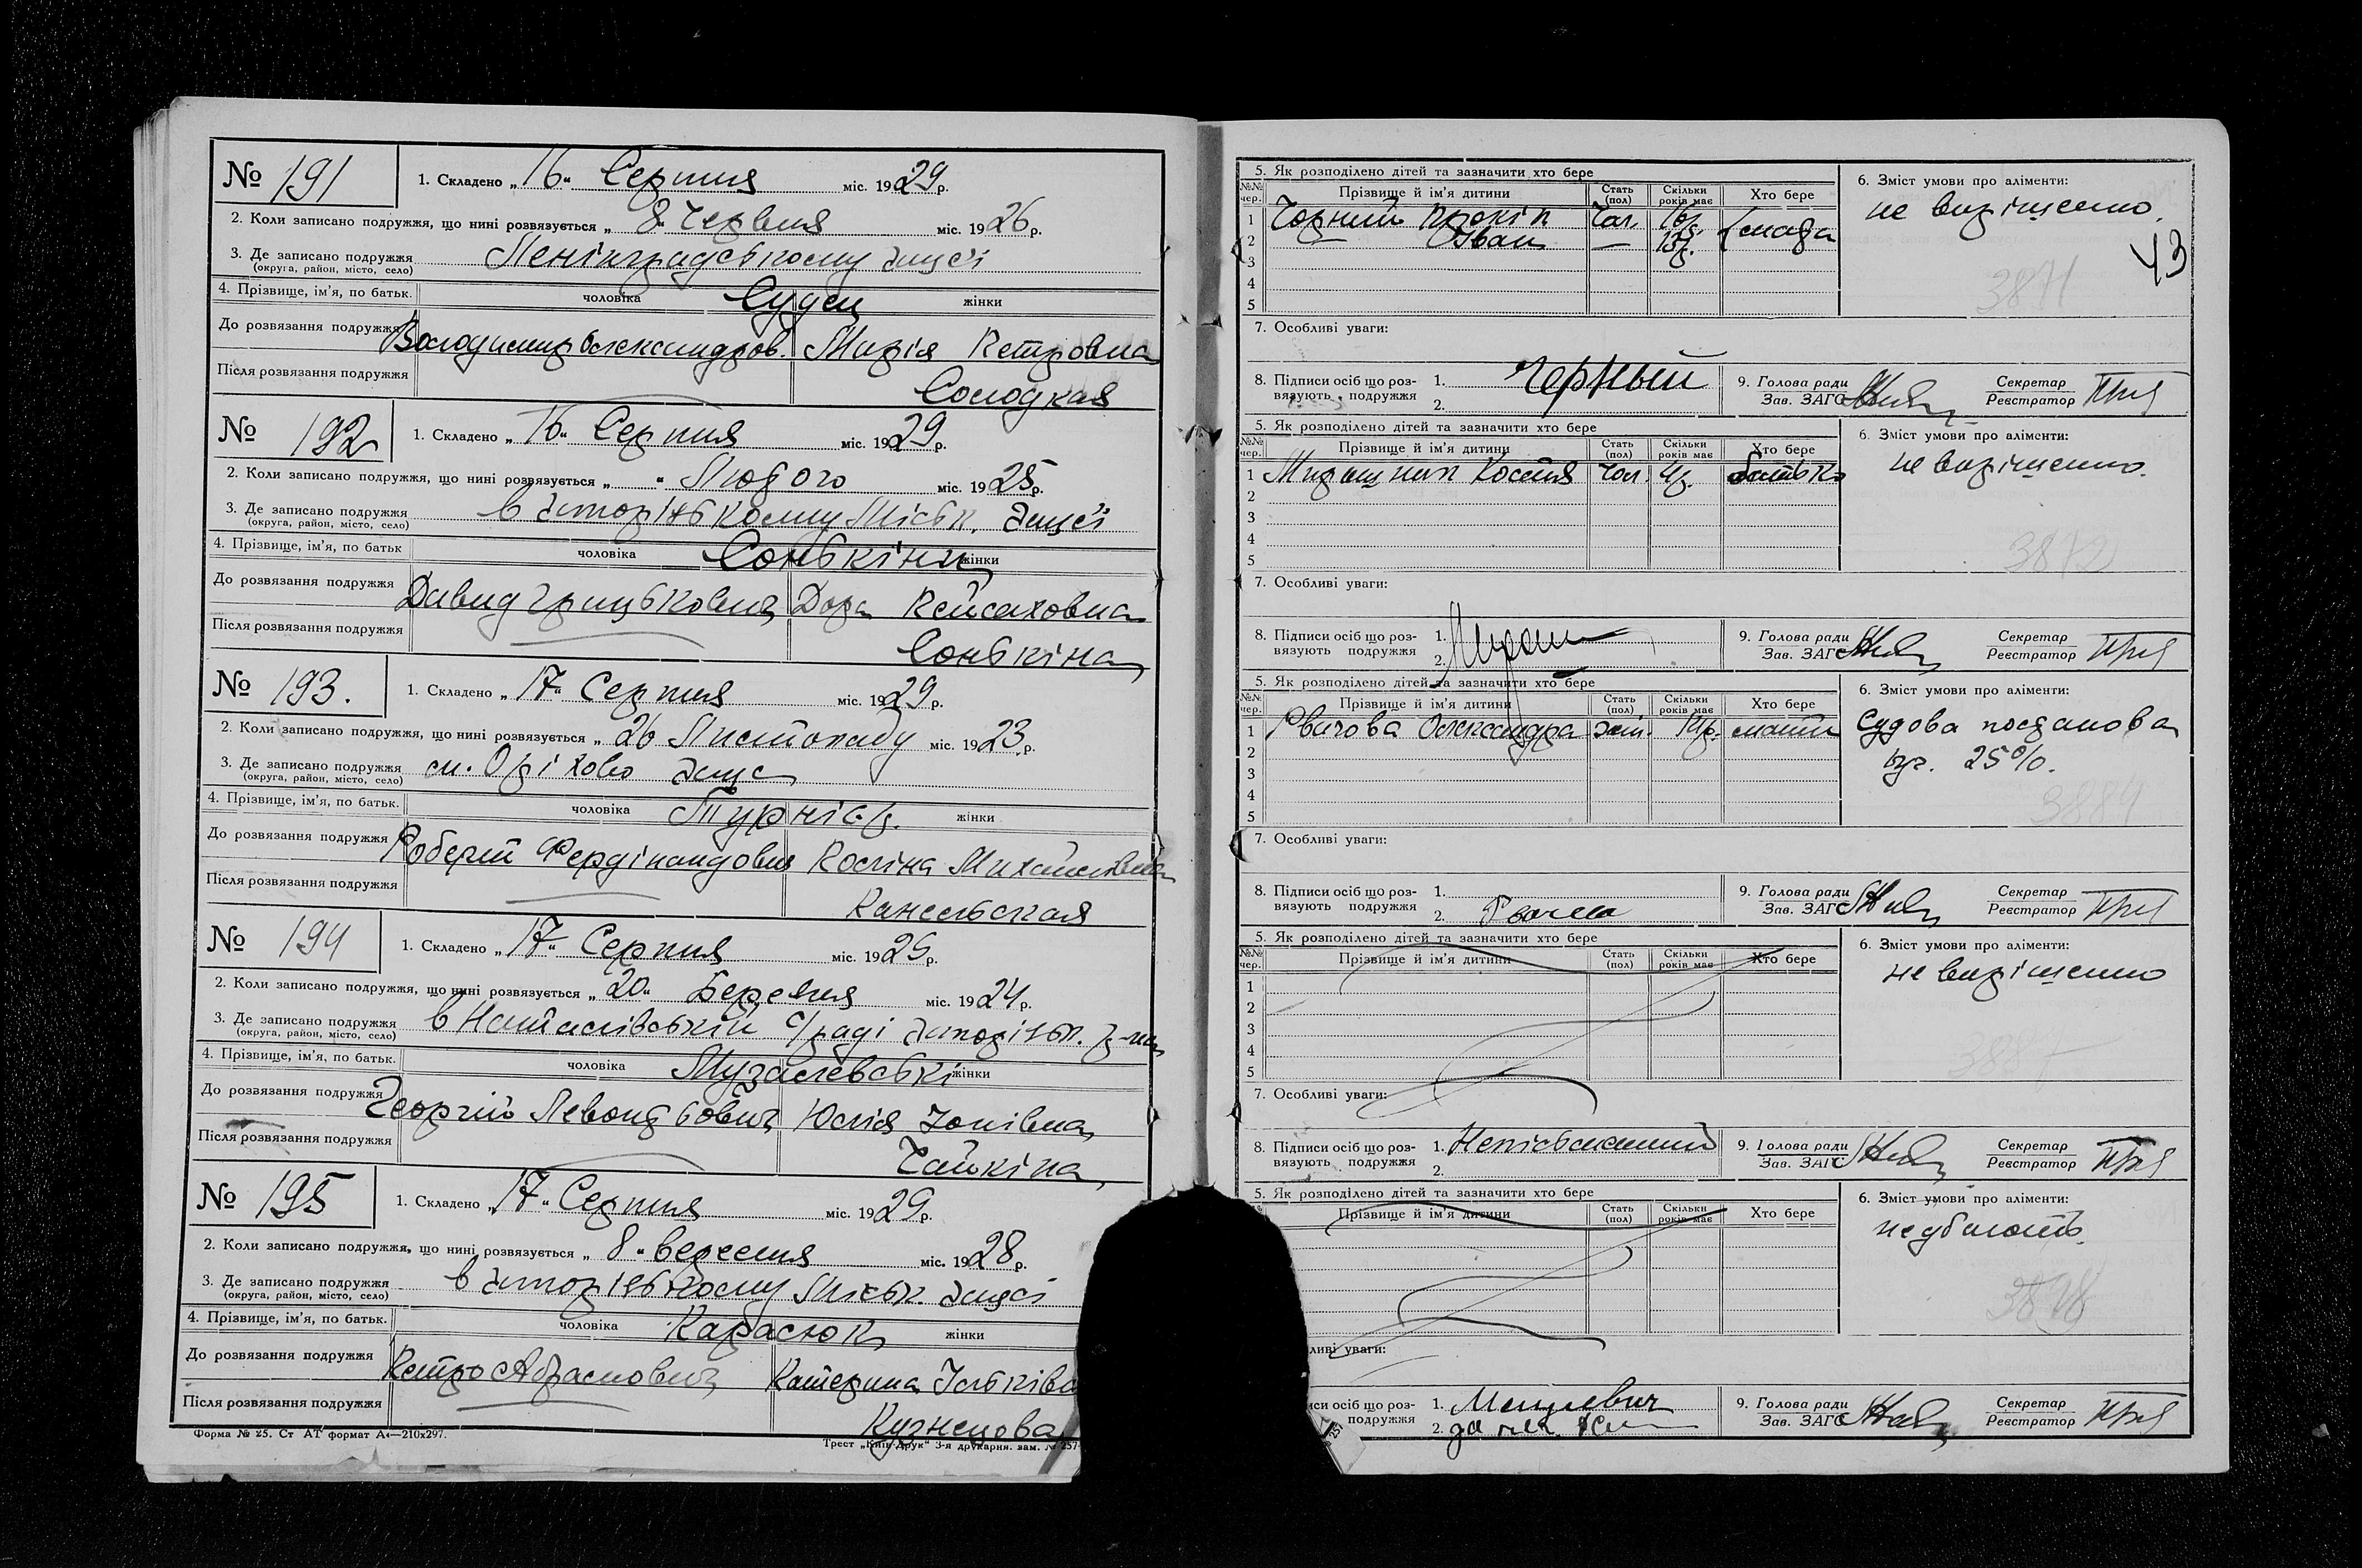 № 191
1. Складено „ 16 “ Серпня міс. 1929 р.
2. Коли записано подружжя, що нині розвязується „ 8 “ Червня міс. 1926 р.
3. Де записано подружжя Ленінградському Загсі
(округа, район, місто, село)
4. Прізвище, ім'я, по батьк. чоловіка жінки
До розвязання подружжя Володимир Олександров. Марія Петровна
Після розвязання подружжя Солодкая
№ 192
1. Складено „ 16 “ Серпня міс. 1929 р.
2. Коли записано подружжя, що нині розвязується „ “ Лютого міс. 1925 р.
3. Де записано подружжя в Запорізькому Міськ. Загсі
(округа, район, місто, село)
4. Прізвище, ім'я, по батьк чоловіка Сонькіни жінки
До розвязання подружжя Давид Грицькович Дора Пейсаховна
Після розвязання подружжя Сонькіна
№ 193.
1. Складено „ 17 “ Серпня міс. 1929 р.
2. Коли записано подружжя, що нині розвязується „ 26 Листопаду міс. 1923 р.
3. Де записано подружжя см. Оріхово Загс
(округа, район, місто, село)
4. Прізвище, ім'я, по батьк. чоловіка жінки
До розвязання подружжя Роберт Фердінандович Поліна Михайловна
Після розвязання подружжя Каневская
№ 194
1. Складено „ 17 “ Серпня міс. 1929 р.
2. Коли записано подружжя, що нині розвязується „ 20 “ Березня міс. 1924 р.
3. Де записано подружжя в Наталівській с/раді Запорізьк. р-на
(округа, район, місто, село)
4. Прізвище, ім'я, по батьк. чоловіка Музалевські жінки
До розвязання подружжя Георгій Левонтьович Юлія Іонівна
Після розвязання подружжя Чайкіна
№ 195
1. Складено „ 17 “ Серпня міс. 1929 р.
2. Коли записано подружжя, що нині розвязується „ 8 “ вересня міс. 1928 р.
3. Де записано подружжя в Запорізькому Міськ. Загсі
(округа, район, місто, село)
4. Прізвище, ім'я, по батьк. чоловіка Карасюк жінки
До розвязання подружжя Петро Абрамович Катерина
Після розвязання подружжя Кузнецова
Форма № 25. Ст АТ формат А4—210х297.
Трест „Київ-Друк“ 3-я друкарня. зам. № 257
5. Як розподілено дітей та зазначити хто бере
6. Зміст умови про аліменти:
№№ чер. Прізвище й ім'я дитини Стать (пол) Скільки років має Хто бере
не вирішено.
43
1 Чорний Прокіп Чол. 16р.
2 Іван — 13р.
3
3871
4
5
7. Особливі уваги:
8. Підписи осіб що розвязують подружжя 1. Черный
2.
9. Голова ради Зав. ЗАГС Секретар Реєстратор
5. Як розподілено дітей та зазначити хто бере
6. Зміст умови про аліменти:
№№ чер. Прізвище й ім'я дитини Стать (пол) Скільки років має Хто бере
не вирішено.
1 Костя Чол. 4р. батько
2
3
4
3872
5
7. Особливі уваги:
8. Підписи осіб що розвязують подружжя 1.
2.
9. Голова ради Зав. ЗАГС Секретар Реєстратор
5. Як розподілено дітей та зазначити хто бере
6. Зміст умови про аліменти:
№№ чер. Прізвище й ім'я дитини Стать (пол) Скільки років має Хто бере
1 Рвачова Олександра жін. мати Судова постанова
2
25%.
3
4
3884
5
7. Особливі уваги:
8. Підписи осіб що розвязують подружжя 1.
2.
9. Голова ради Зав. ЗАГС Секретар Реєстратор
5. Як розподілено дітей та зазначити хто бере
6. Зміст умови про аліменти:
№№ чер. Прізвище й ім'я дитини Стать (пол) Скільки років має Хто бере
не вирішено
1
2
3
4
5
7. Особливі уваги:
8. Підписи осіб що розвязують подружжя 1.
2.
9. Голова ради Зав. ЗАГС Секретар Реєстратор
5. Як розподілено дітей та зазначити хто бере
6. Зміст умови про аліменти:
Прізвище й ім'я дитини Стать (пол) Скільки років має Хто бере
ливі уваги:
иси осіб що роз- подружжя 1.
2.
9. Голова ради Зав. ЗАГС Секретар Реєстратор